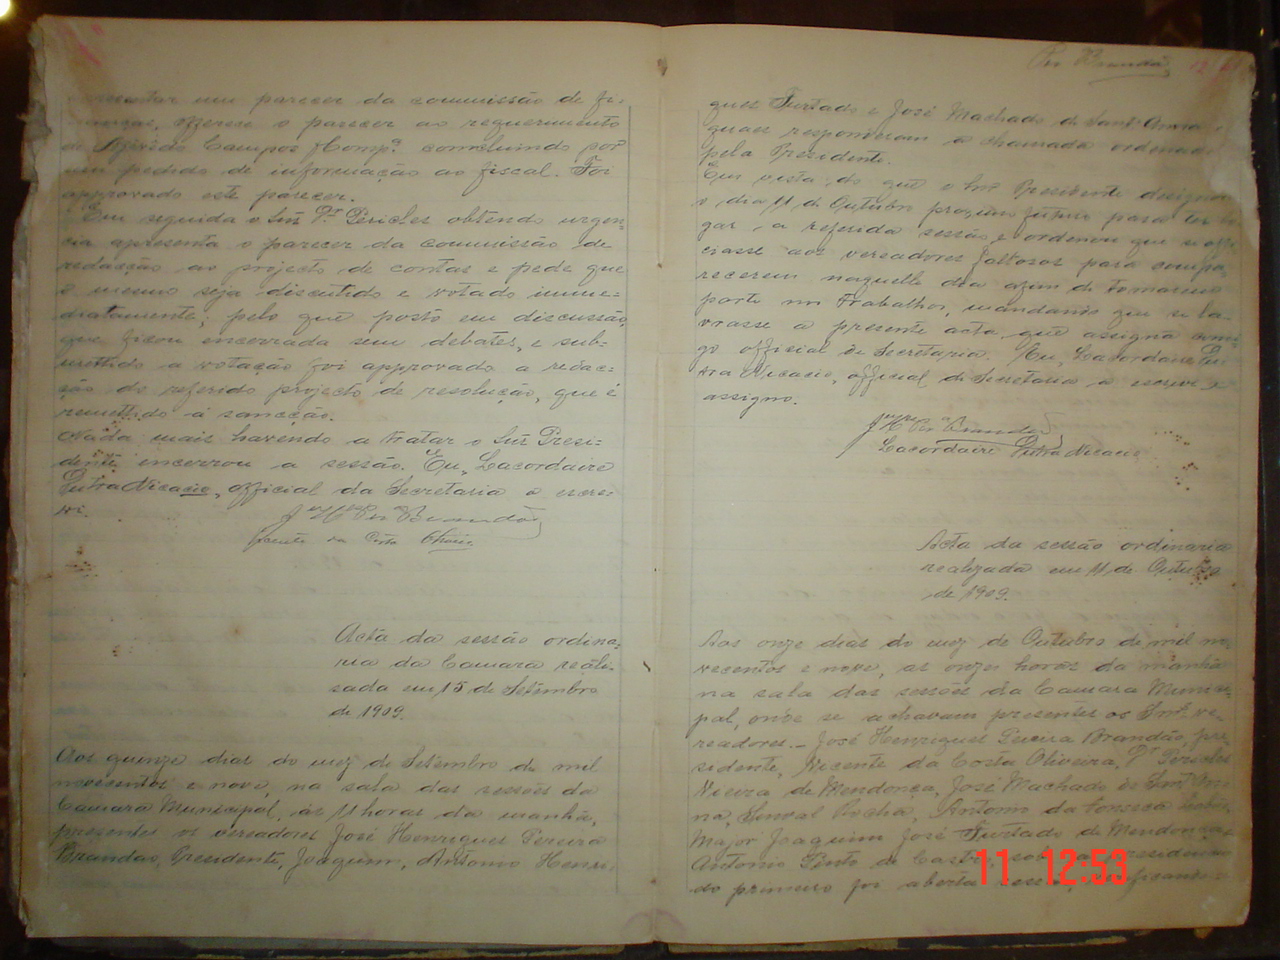 um parecer da commissão de fi-
nanças, offerece o parecer ao requerimento
de Alfredo Campos & Compª concluindo por
um pedido de informação ao fiscal. Foi
approvado este parecer.
Em seguida o Snr Dr Pericles obtendo urgen-
cia apresenta o parecer da commissão de
redacção ao projecto de contas e pede que
o mesmo seja discutido e votado imme-
diatamente; pelo que posto em discussão,
que ficou encerrada sem debates, e sub-
mettido a votação foi approvado a redac-
ção do referido projecto de resolução, que é
remettido á sancção.
Nada mais havendo a tratar o Snr Presi-
dente encerrou a sessão. Eu, Lacordaire
Dutra Nicacio, official da Secretaria o escre-
vi.
Pra Brandão
Vicente da Costa
Acta da sessão ordina-
ria da Camara reali-
sada em 15 de Setembro
de 1909.
Aos quinze dias do mez de Setembro de mil
novecentos e nove, na sala das sessões da
Camara Municipal, ás 11 horas da manhã,
presentes os vereadores José Henriques Pereira
Brandão, Presidente, Joaquim, Antonio Henri-
Pra Brandão
ques Furtado e José Machado de Sant'Anna,
quaes responderam a chamada ordenada
pela Presidente.
Em vista do que o Snr Presidente designou
o dia 11 de Outubro proximo futuro para ter lu-
gar, a referida sessão, e ordenou que se offi-
ciasse aos vereadores faltosos para compa-
recerem naquelle dia afim de tomarem
parte nos trabalhos, mandando que se la-
vrasse a presente acta que assigna comi-
go official de Secretaria. Eu, Lacordaire Du-
tra Nicacio, official da Secretaria a escrevi e
assigno.
Pra Brandão
Lacordaire Dutra Nicacio
Acta da sessão ordinaria
realizada em 11 de Outubro
de 1909.
Aos onze dias do mez de Outubro de mil no-
vecentos e nove, as onze horas da manhã
na sala das sessões da Camara Munici-
pal, onde se achavam presentes os Snrs ve-
readores. - José Henriques Pereira Brandão, pre-
sidente, Vicente da Costa Oliveira, Dr Pericles
Vieira de Mendonça, José Machado de Sant'An-
na, Rocha, Antonio da Fonseca
Major Joaquim José Furtado de Mendonça e
Antonio Pinto de Castro, sob a presidencia
do primeiro foi aberta
11 12:53